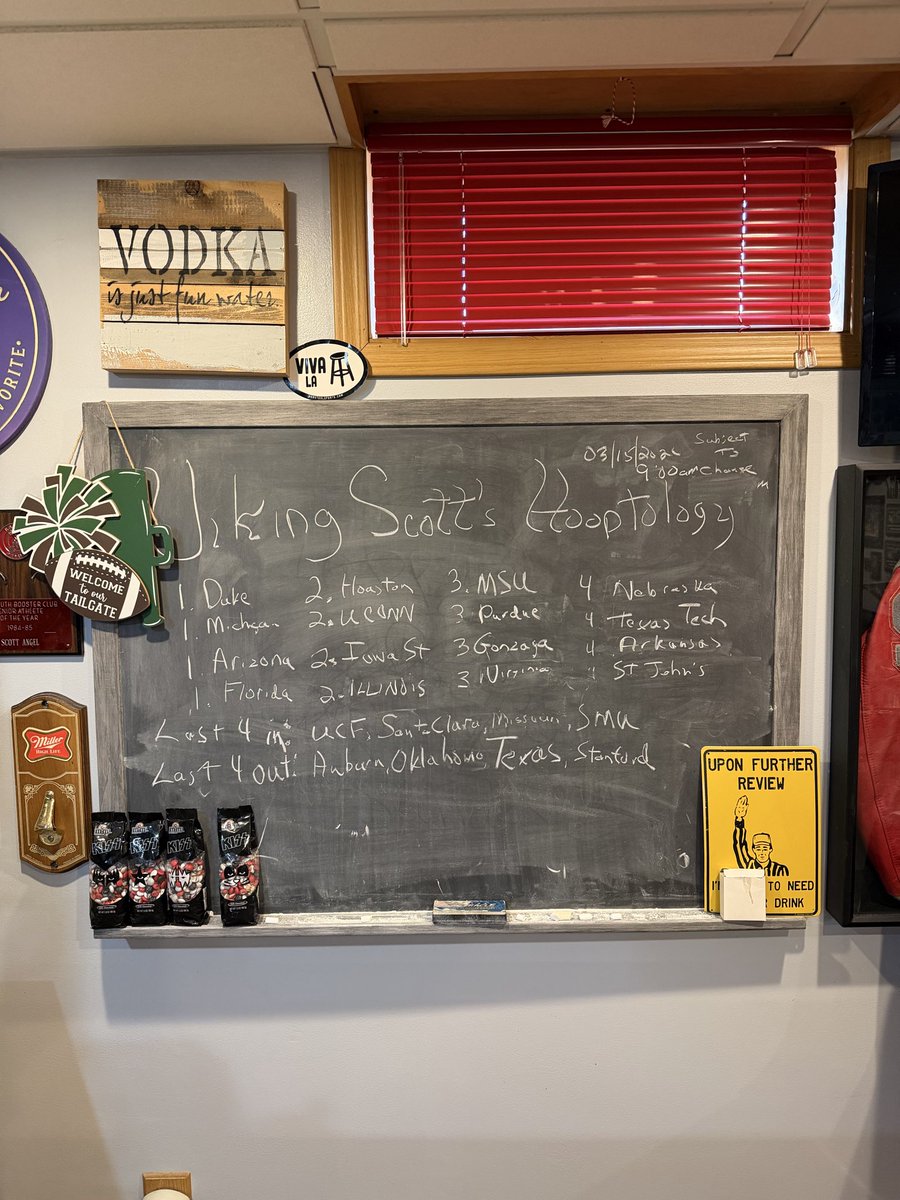 VODKA
is just fun water.
VIVA
LA
ORITE
WELCOME
to our
TAILGATE
UTH BOOSTER CLUB
ENIOR ATHLETE
OF THE YEAR
1984-85
SCOTT ANGEL
Miller
HIGH LIFE
03/15/202 Subject
To
9:00am Change
Viking Scott's Hooptology
1. Duke 2. Houston 3. MSU 4 Nebraska
1. Michigan 2. UCONN 3 Purdue 4 Texas Tech
1. Arizona 2. Iowa St 3 Gonzaga 4 Arkansas
1. Florida 2. ILLINOIS 3 Virginia 4 ST John's
Last 4 in: UCF, Santa Clara, Missouri, SMU
Last 4 out: Auburn, Oklahoma, Texas, Stanford
KISS
KISS
KISS
KISS
UPON FURTHER
REVIEW
TO NEED
DRINK